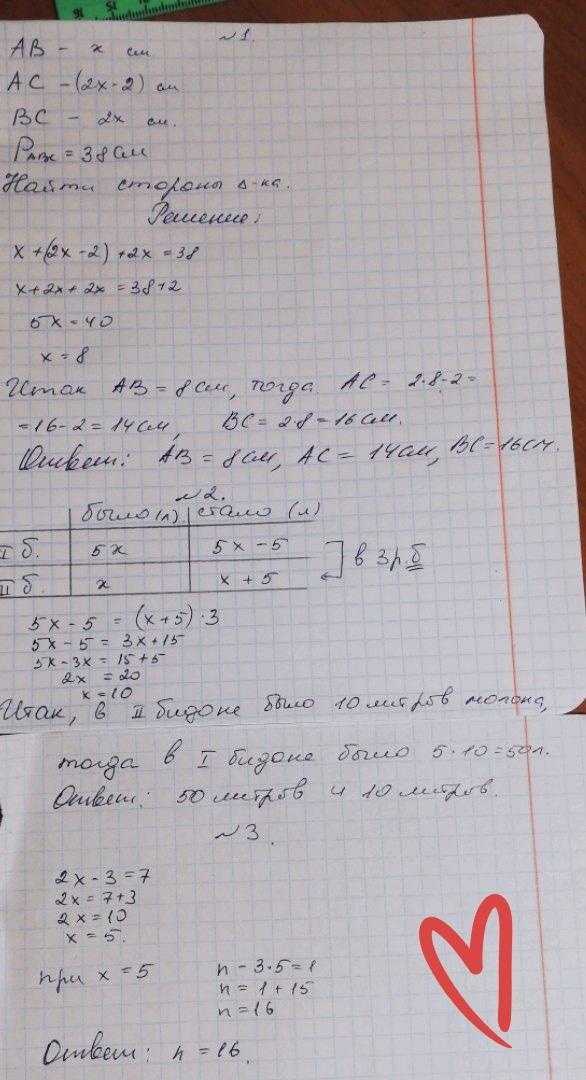 16 15
№1.
AB - x см
AC - (2x-2) см
BC - 2x см.
PАВС = 38 см
Найти стороны Δ-ка.
Решение:
x + (2x - 2) + 2x = 38
x + 2x + 2x = 38 + 2
5x = 40
x = 8
Итак AB = 8 см, тогда AC = 2·8-2=
=16-2=14 см, BC = 2·8=16 см.
Ответ: AB = 8 см, AC = 14 см, BC = 16 см.
№2.
было (л) стало (л)
I б. 5x 5x - 5
II б. x x + 5
в 3 р. б
5x - 5 = (x+5)·3
5x - 5 = 3x + 15
5x - 3x = 15 + 5
2x = 20
x = 10
Итак, в II бидоне было 10 литров молока,
тогда в I бидоне было 5·10=50 л.
Ответ: 50 литров и 10 литров.
№3.
2x - 3 = 7
2x = 7+3
2x = 10
x = 5.
при x = 5 n - 3·5 = 1
n = 1 + 15
n = 16
Ответ: n = 16.